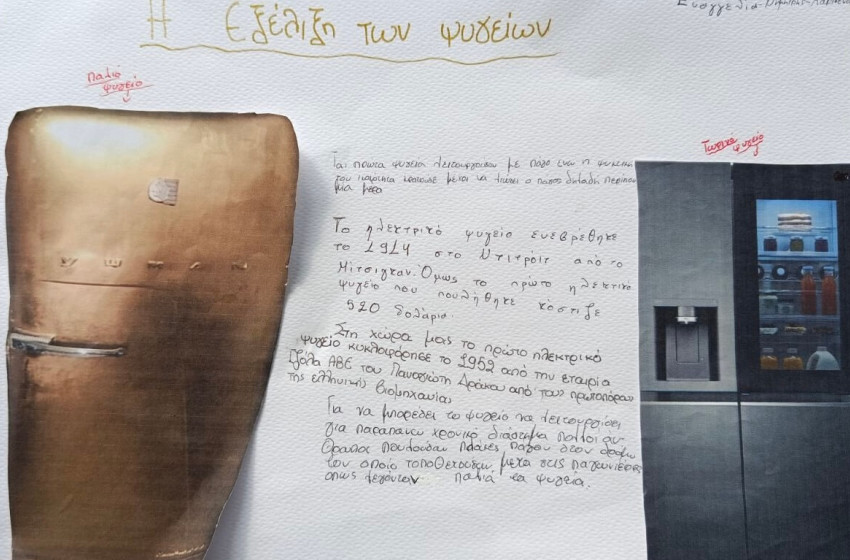 Η Εξέλιξη των ψυγείων
Παλιό
ψυγείο
Τωρινο ψυγείο
Τα πρωτα ψυγεια λειτουργουσαν με παγο ενω η ψυκτικη
του ικανοτητα κρατουσε μεχρι να λιωσει ο παγος δηλαδη περιπου
μια μερα
Το ηλεκτρικό ψυγείο ενεβρέθηκε
το 1914 στο Ντιτρόιτ από το
Μίτσιγκαν. Όμως το πρώτο ηλεκτικό
ψυγείο που πουλήθηκε κόστιζε
920 δολάρια.
Στη χώρα μας το πρώτο ηλεκτρικό
ψυγείο κυκλοφόρησε το 1952 από την εταιρία
Ιζόλα ΑΒΕ του Παναγιώτη Δράκου από τους πρωτοπόρους
της ελληνικής βιομηχανίας
Για να μπορεσει το ψυγείο να λειτουργίσει
για παραπανω χρονικό διάστημα πολλοι αν
θρωποι πουλούσαν πλάκες πάγου στον δρόμο
τον οποίο τοποθετούσαν μετα στις παγωνιέρες
οπως λεγόνταν παλιά τα ψυγεία.